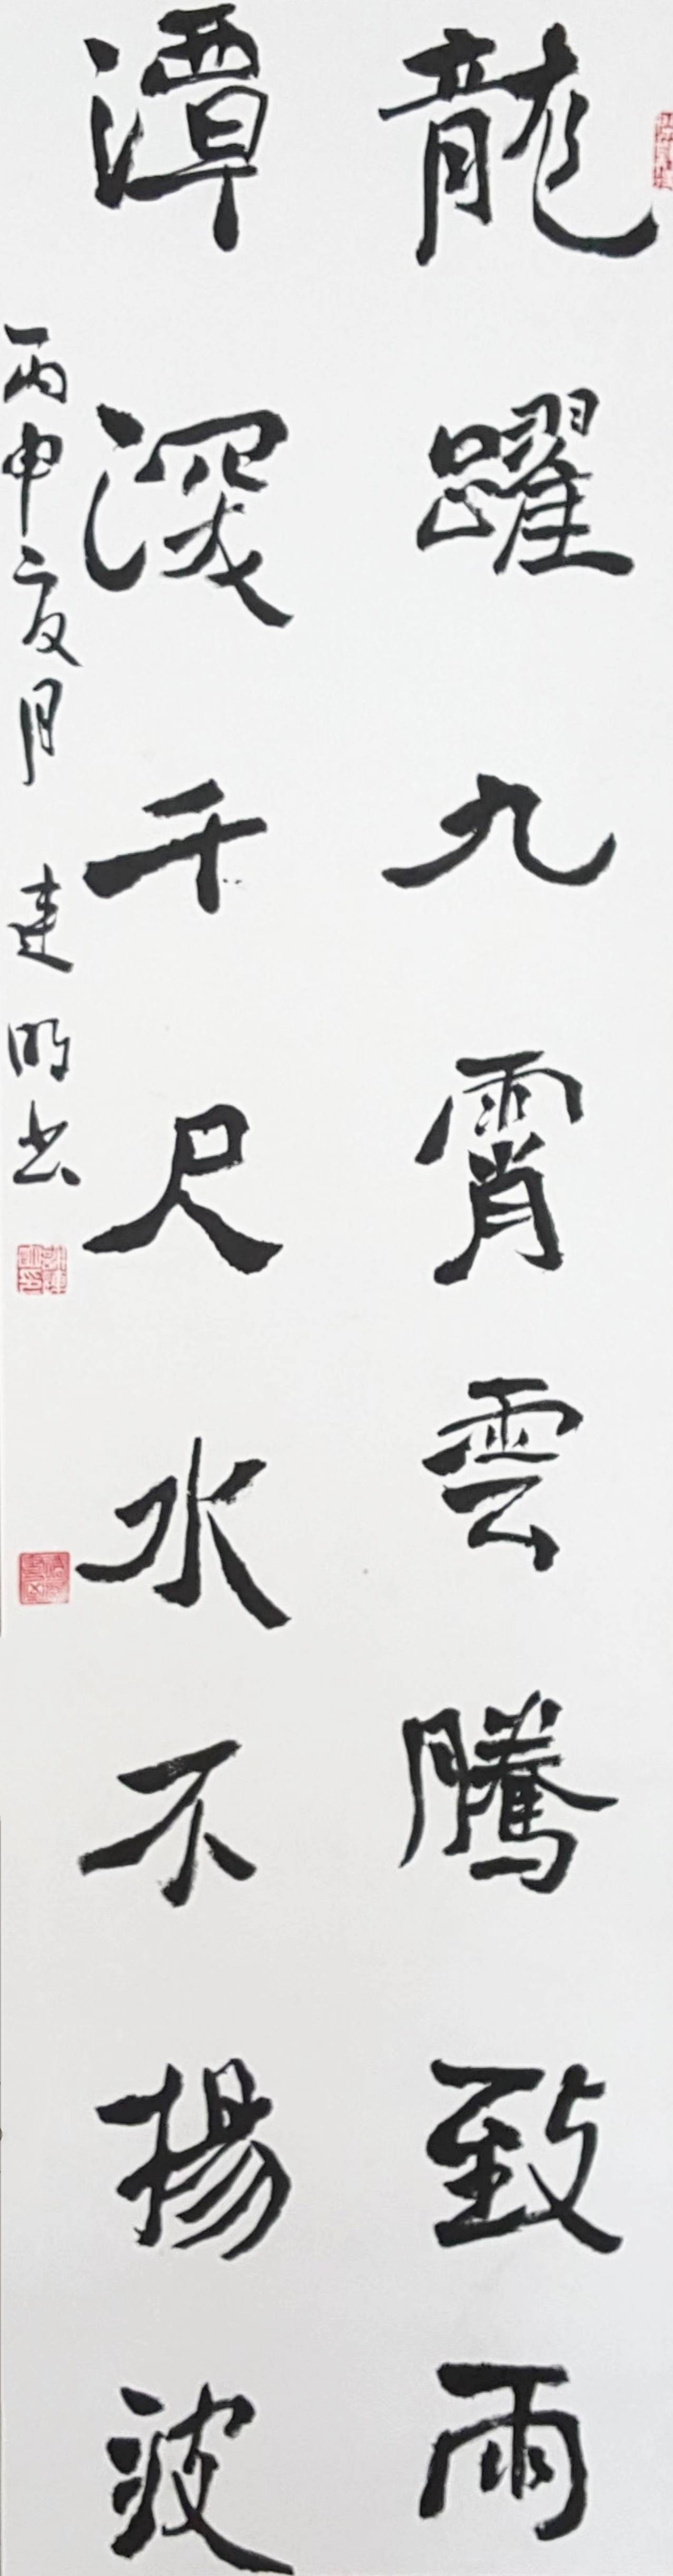 龍躍九霄雲騰致雨
潭深千尺水不揚波
丙申夏月 建明书